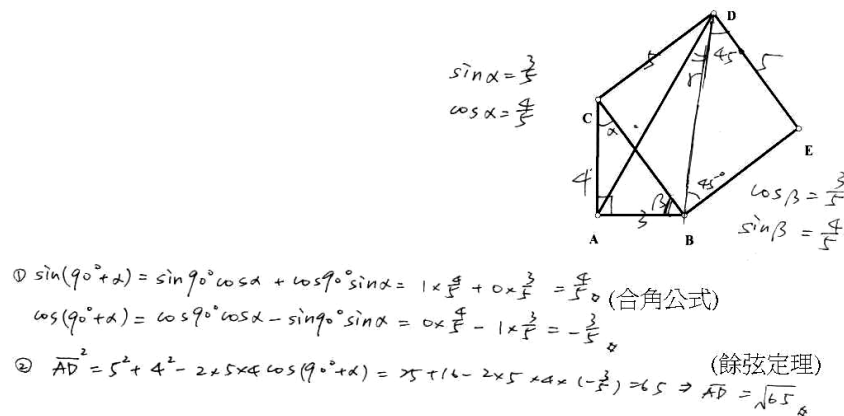 D
45
5
5
γ
sinα = 3/5
cosα = 4/5
C
α
E
4
β
45°
3
A
B
cosβ = 3/5
sinβ = 4/5
① sin(90°+α) = sin90°cosα + cos90°sinα = 1×4/5 + 0×3/5 = 4/5 (合角公式)
cos(90°+α) = cos90°cosα - sin90°sinα = 0×4/5 - 1×3/5 = -3/5
② AD² = 5² + 4² - 2×5×4cos(90°+α) = 25+16-2×5×4×(-3/5) = 65 ⇒ AD = √65 (餘弦定理)